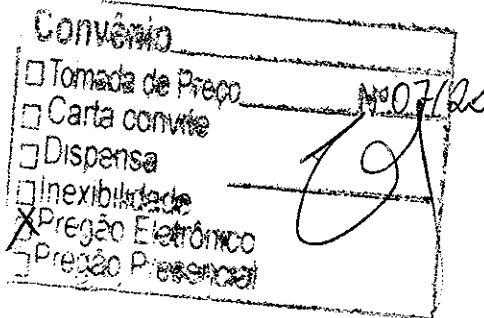 Convênio
Tomada de Preço Nº 07/20
Carta convite
Dispensa
Inexibilidade
X Pregão Eletrônico
Pregão Presencial